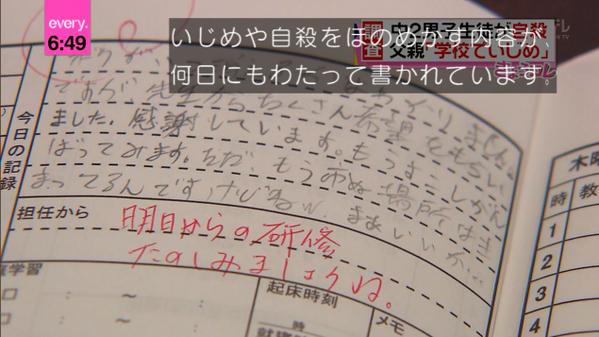 every.
6:49
調査
中2男子生徒が自殺
父親"学校でいじめ"
いじめや自殺をほのめかす内容が、
何日にもわたって書かれています。
ですが、先生からたくさん希望をもらい
ました。感謝しています。もうすこしがん
ばってみます。ただ、もう市ぬ場所はき
まってるんですけどねw。まあいいか…
今日の記録
担任から
明日からの研修
たのしみましょうね。
庭学習
起床時刻
メモ
時
木曜
時
教
1
2
3
4